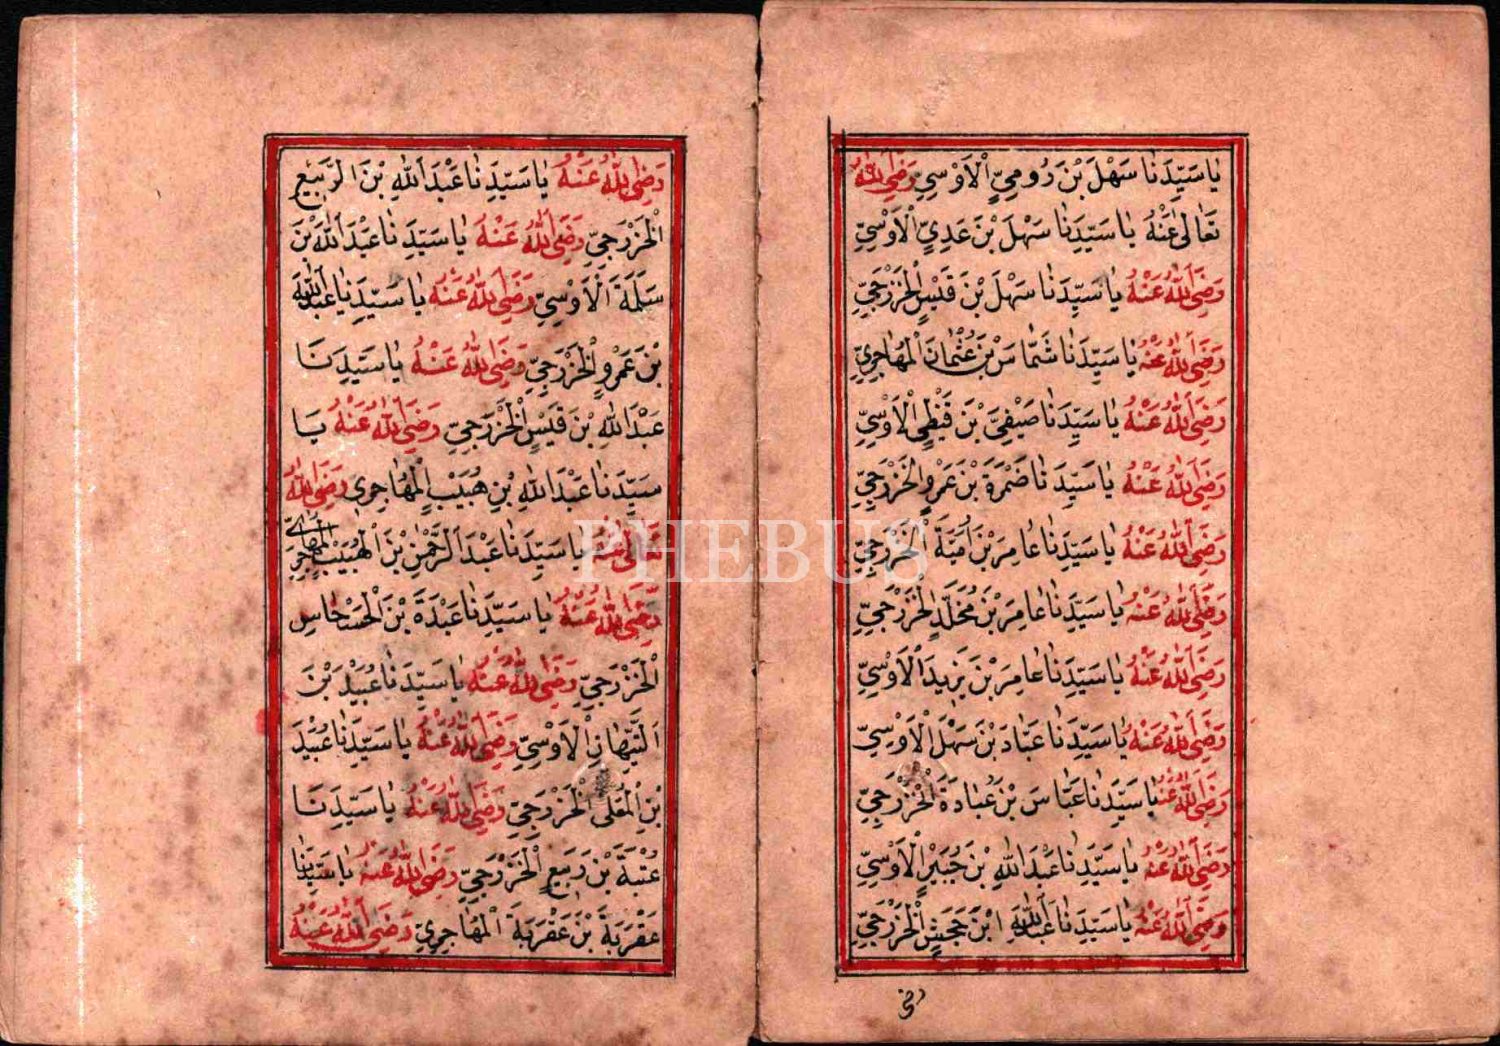 يَا سَيِّدَنَا سَهْلَ بْنَ رُومِيٍّ الْاَوْسِيِّ رَضِيَ اللّٰهُ
تَعَالٰى عَنْهُ يَا سَيِّدَنَا سَهْلَ بْنَ عَدِيٍّ الْاَوْسِيِّ
رَضِيَ اللّٰهُ عَنْهُ يَا سَيِّدَنَا سَهْلَ بْنَ قَيْسٍ الْخَزْرَجِيِّ
رَضِيَ اللّٰهُ عَنْهُ يَا سَيِّدَنَا شَمَّاسَ بْنَ عُثْمَانَ الْمُهَاجِرِيِّ
رَضِيَ اللّٰهُ عَنْهُ يَا سَيِّدَنَا صَيْفِيَّ بْنَ قَيْظِيٍ الْاَوْسِيِّ
رَضِيَ اللّٰهُ عَنْهُ يَا سَيِّدَنَا ضَمْرَةَ بْنَ عَمْرٍو الْخَزْرَجِيِّ
رَضِيَ اللّٰهُ عَنْهُ يَا سَيِّدَنَا عَامِرَ بْنَ اُمَيَّةَ الْخَزْرَجِيِّ
رَضِيَ اللّٰهُ عَنْهُ يَا سَيِّدَنَا عَامِرَ بْنَ مُخَلَّدٍ الْخَزْرَجِيِّ
رَضِيَ اللّٰهُ عَنْهُ يَا سَيِّدَنَا عَامِرَ بْنَ يَزِيدَ الْاَوْسِيِّ
رَضِيَ اللّٰهُ عَنْهُ يَا سَيِّدَنَا عَبَّادَ بْنَ سَهْلٍ الْاَوْسِيِّ
رَضِيَ اللّٰهُ عَنْهُ يَا سَيِّدَنَا عَبَّاسَ بْنَ عُبَادَةَ الْخَزْرَجِيِّ
رَضِيَ اللّٰهُ عَنْهُ يَا سَيِّدَنَا عَبْدَ اللّٰهِ بْنَ جُبَيْرٍ الْاَوْسِيِّ
رَضِيَ اللّٰهُ عَنْهُ يَا سَيِّدَنَا عَبْدَ اللّٰهِ ابْنَ جَحْشٍ الْخَزْرَجِيِّ
رضى
رَضِيَ اللّٰهُ عَنْهُ يَا سَيِّدَنَا عَبْدَ اللّٰهِ بْنَ الرَّبِيعِ
الْخَزْرَجِيِّ رَضِيَ اللّٰهُ عَنْهُ يَا سَيِّدَنَا عَبْدَ اللّٰهِ بْنَ
سَلَمَةَ الْاَوْسِيِّ رَضِيَ اللّٰهُ عَنْهُ يَا سَيِّدَنَا عَبْدَ اللّٰهِ
بْنَ عَمْرٍو الْخَزْرَجِيِّ رَضِيَ اللّٰهُ عَنْهُ يَا سَيِّدَنَا
عَبْدَ اللّٰهِ بْنَ قَيْسٍ الْخَزْرَجِيِّ رَضِيَ اللّٰهُ عَنْهُ يَا
سَيِّدَنَا عَبْدَ اللّٰهِ بْنِ هُبَيْبٍ الْمُهَاجِرِي رَضِيَ اللّٰهُ
تَعَالٰى عَنْهُ يَا سَيِّدَنَا عَبْدَ الرَّحْمٰنِ بْنَ الْهُبَيْبِ الْمُهَاجِرِيِّ
رَضِيَ اللّٰهُ عَنْهُ يَا سَيِّدَنَا عَبْدَةَ بْنَ الْحَسْحَاسِ
الْخَزْرَجِيِّ رَضِيَ اللّٰهُ عَنْهُ يَا سَيِّدَنَا عُبَيْدَ بْنَ
التَّيِّهَانِ الْاَوْسِيِّ رَضِيَ اللّٰهُ عَنْهُ يَا سَيِّدَنَا عُبَيْدَ
بْنِ الْمُعَلَّى الْخَزْرَجِيِّ رَضِيَ اللّٰهُ عَنْهُ يَا سَيِّدَنَا
عُتْبَةَ بْنَ رَبِيعٍ الْخَزْرَجِيِّ رَضِيَ اللّٰهُ عَنْهُ يَا سَيِّدَنَا
عَقْرَبَةَ بْنَ عَقْرَبَةَ الْمُهَاجِرِيِّ رَضِيَ اللّٰهُ عَنْهُ
PHEBUS